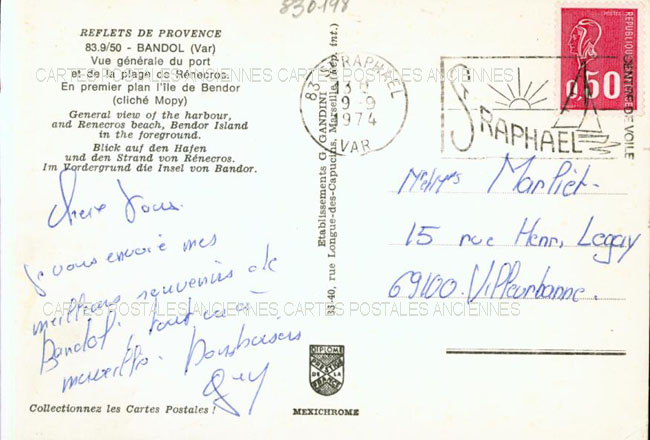 830-198
REFLETS DE PROVENCE
83.9/50 - BANDOL (Var)
Vue générale du port
et de la plage de Rénecros.
En premier plan l'île de Bendor
(cliché Mopy)
General view of the harbour,
and Renecros beach, Bendor Island
in the foreground.
Blick auf den Hafen
und den Strand von Rénecros.
Im Vordergrund die Insel von Bandor.
CARTES POSTALES ANCIENNES CARTES POSTALES ANCIENNES
Je vous envoie mes
meilleurs souvenirs de
Bandol, tout va à
merveille. Bons baisers
Guy
CARTES POSTALES ANCIENNES CARTES POSTALES ANCIENNES
Collectionnez les Cartes Postales !
Etablissements G. GANDINI
33-40, rue Longue-des-Capucins, Marseille (Rép. int.)
DIPLOME
PRESTIGE
DE LA
FRANCE
MEXICHROME
83 ST RAPHAEL
13 H
9-9
1974
VAR
ST RAPHAEL
CENTRE DE VOILE
REPUBLIQUE
0,50
Marliet
15 rue Henri Legay
69100 Villeurbanne.